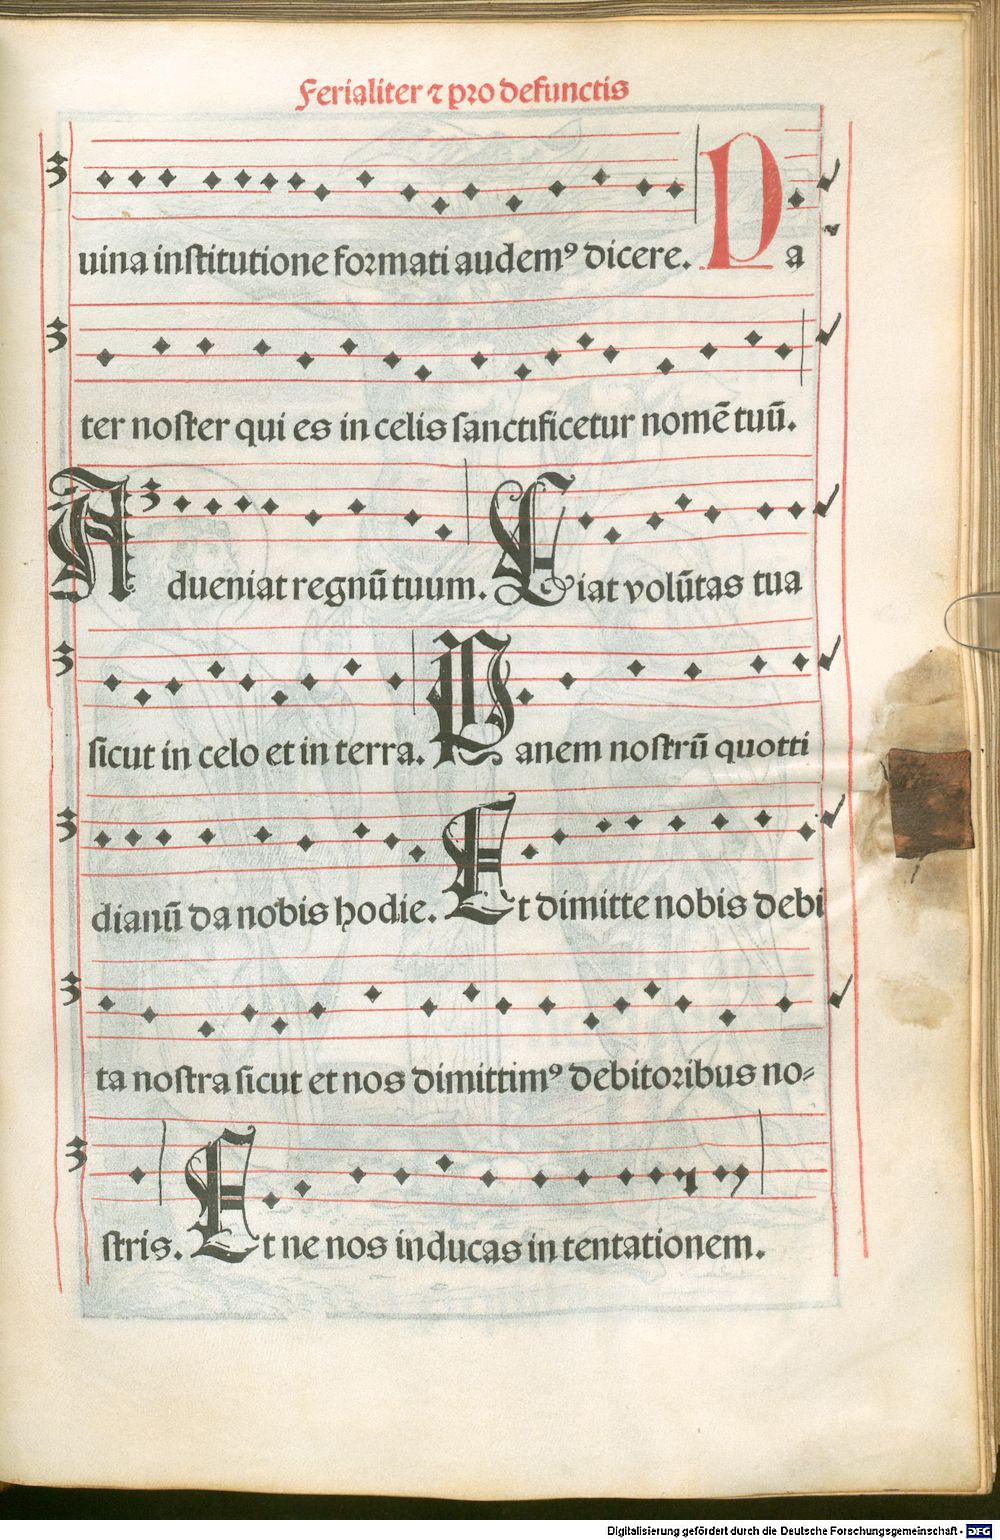 Ferialiter ⁊ pro defunctis
uina institutione formati audemꝰ dicere. Pa
ter noster qui es in celis sanctificetur nomē tuū.
Adueniat regnū tuum. Fiat volūtas tua
sicut in celo et in terra. Panem nostrū quotti
dianū da nobis hodie. Et dimitte nobis debi
ta nostra sicut et nos dimittimꝰ debitoribus no⸗
stris. Et ne nos inducas in tentationem.
Digitalisierung gefördert durch die Deutsche Forschungsgemeinschaft - DFG